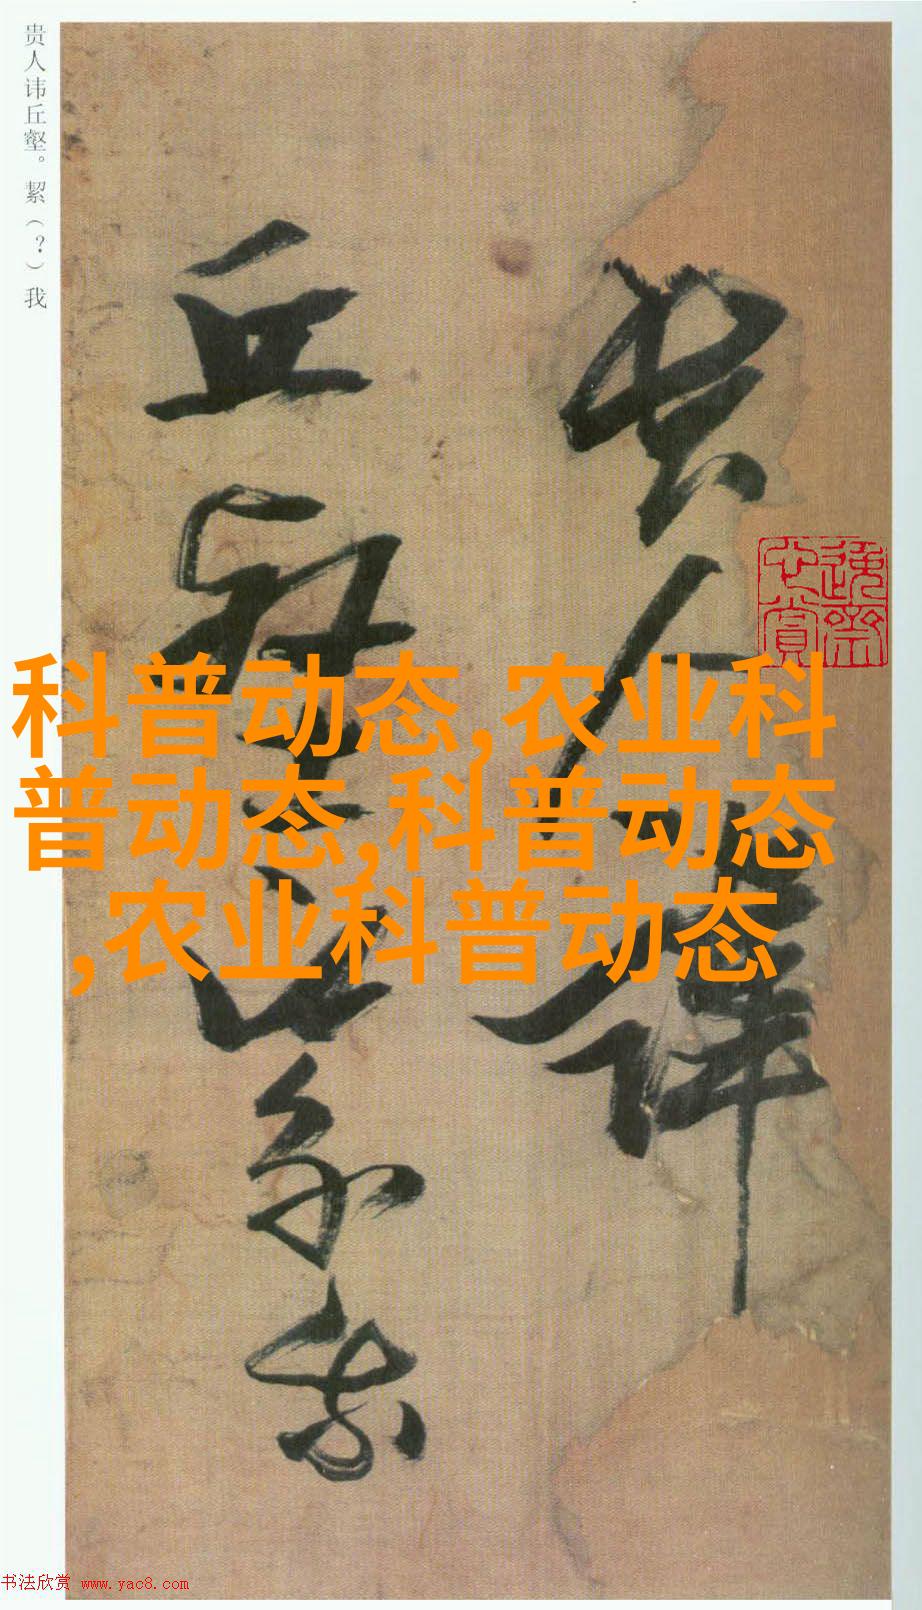 贵人讳丘壑。絜（？）我
贵人讳
丘壑絜我
科普动态,农业科
普动态,科普动态
,农业科普动态
书法欣赏 www.yac8.com